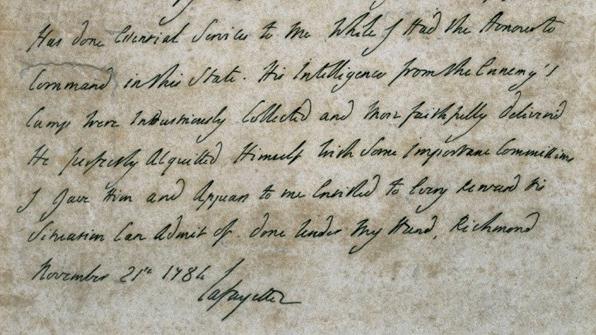 Has done Essential Services to Me While I Had the Honour to
Command in this State. His Intelligences from the Ennemy's
Camp Were Industriously Collected and More faithfully deliverd
He perfectly Acquitted Himself With Some Important Commissions
I Gave Him and Appears to me Entitled to Every Reward his
Situation Can Admit of. done Under My Hand, Richmond
November 21st 1784
Lafayette